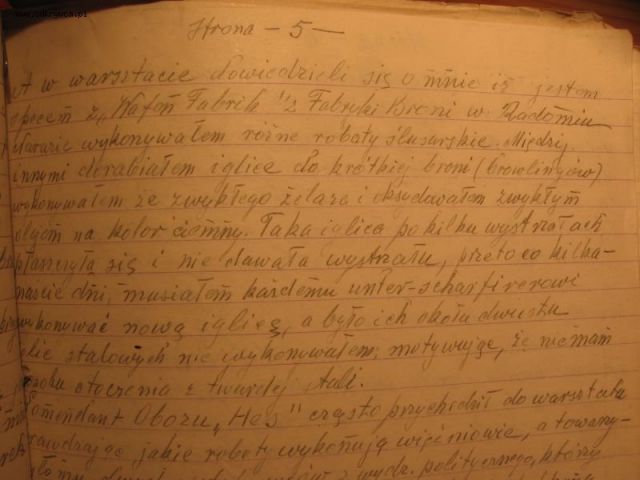 www.odkrywca.pl
Strona - 5 -
A w warsztacie dowiedzieli się o mnie iż jestem
spocem z „Wafoń Fabrik" z Fabryki Broni w Radomiu
wykonywałem różne roboty ślusarskie. Między
innymi dorabiałem iglice do krótkiej broni (browlingów)
wykonywałem ze zwykłego żelaza i oksydawałem zwykłym
na kolor ciemny. Taka iglica po kilku wystrzałach
się i nie dawała wystrzału, przeto co kilka-
naście dni, musiałem każdemu unter-scharfirerowi
wykonywać nową iglicę, a było ich około dwustu
stalowych nie wykonywałem, motywując, że nie mam
otoczenia z twardej stali.
Komendant Obozu „Hes" często przychodził do warsztatu
jakie roboty wykonują więźniowie, a towarzy-
z wydz. politycznego, który